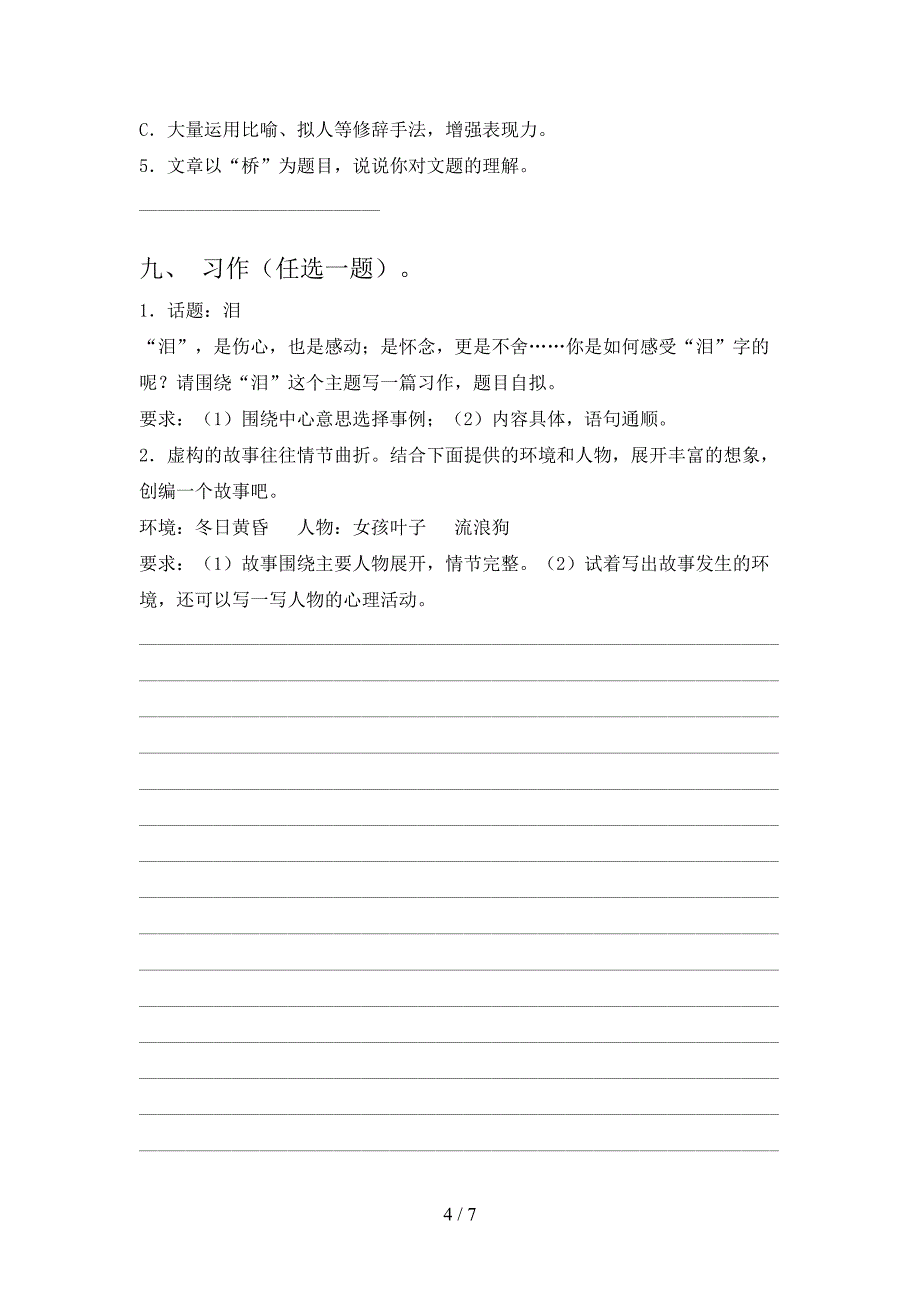 C．大量运用比喻、拟人等修辞手法，增强表现力。
5．文章以“桥”为题目，说说你对文题的理解。
__________________________
九、 习作（任选一题）。
1．话题：泪
“泪”，是伤心，也是感动；是怀念，更是不舍……你是如何感受“泪”字的
呢？请围绕“泪”这个主题写一篇习作，题目自拟。
要求：（1）围绕中心意思选择事例；（2）内容具体，语句通顺。
2．虚构的故事往往情节曲折。结合下面提供的环境和人物，展开丰富的想象，
创编一个故事吧。
环境：冬日黄昏   人物：女孩叶子   流浪狗
要求：（1）故事围绕主要人物展开，情节完整。（2）试着写出故事发生的环
境，还可以写一写人物的心理活动。
4 / 7